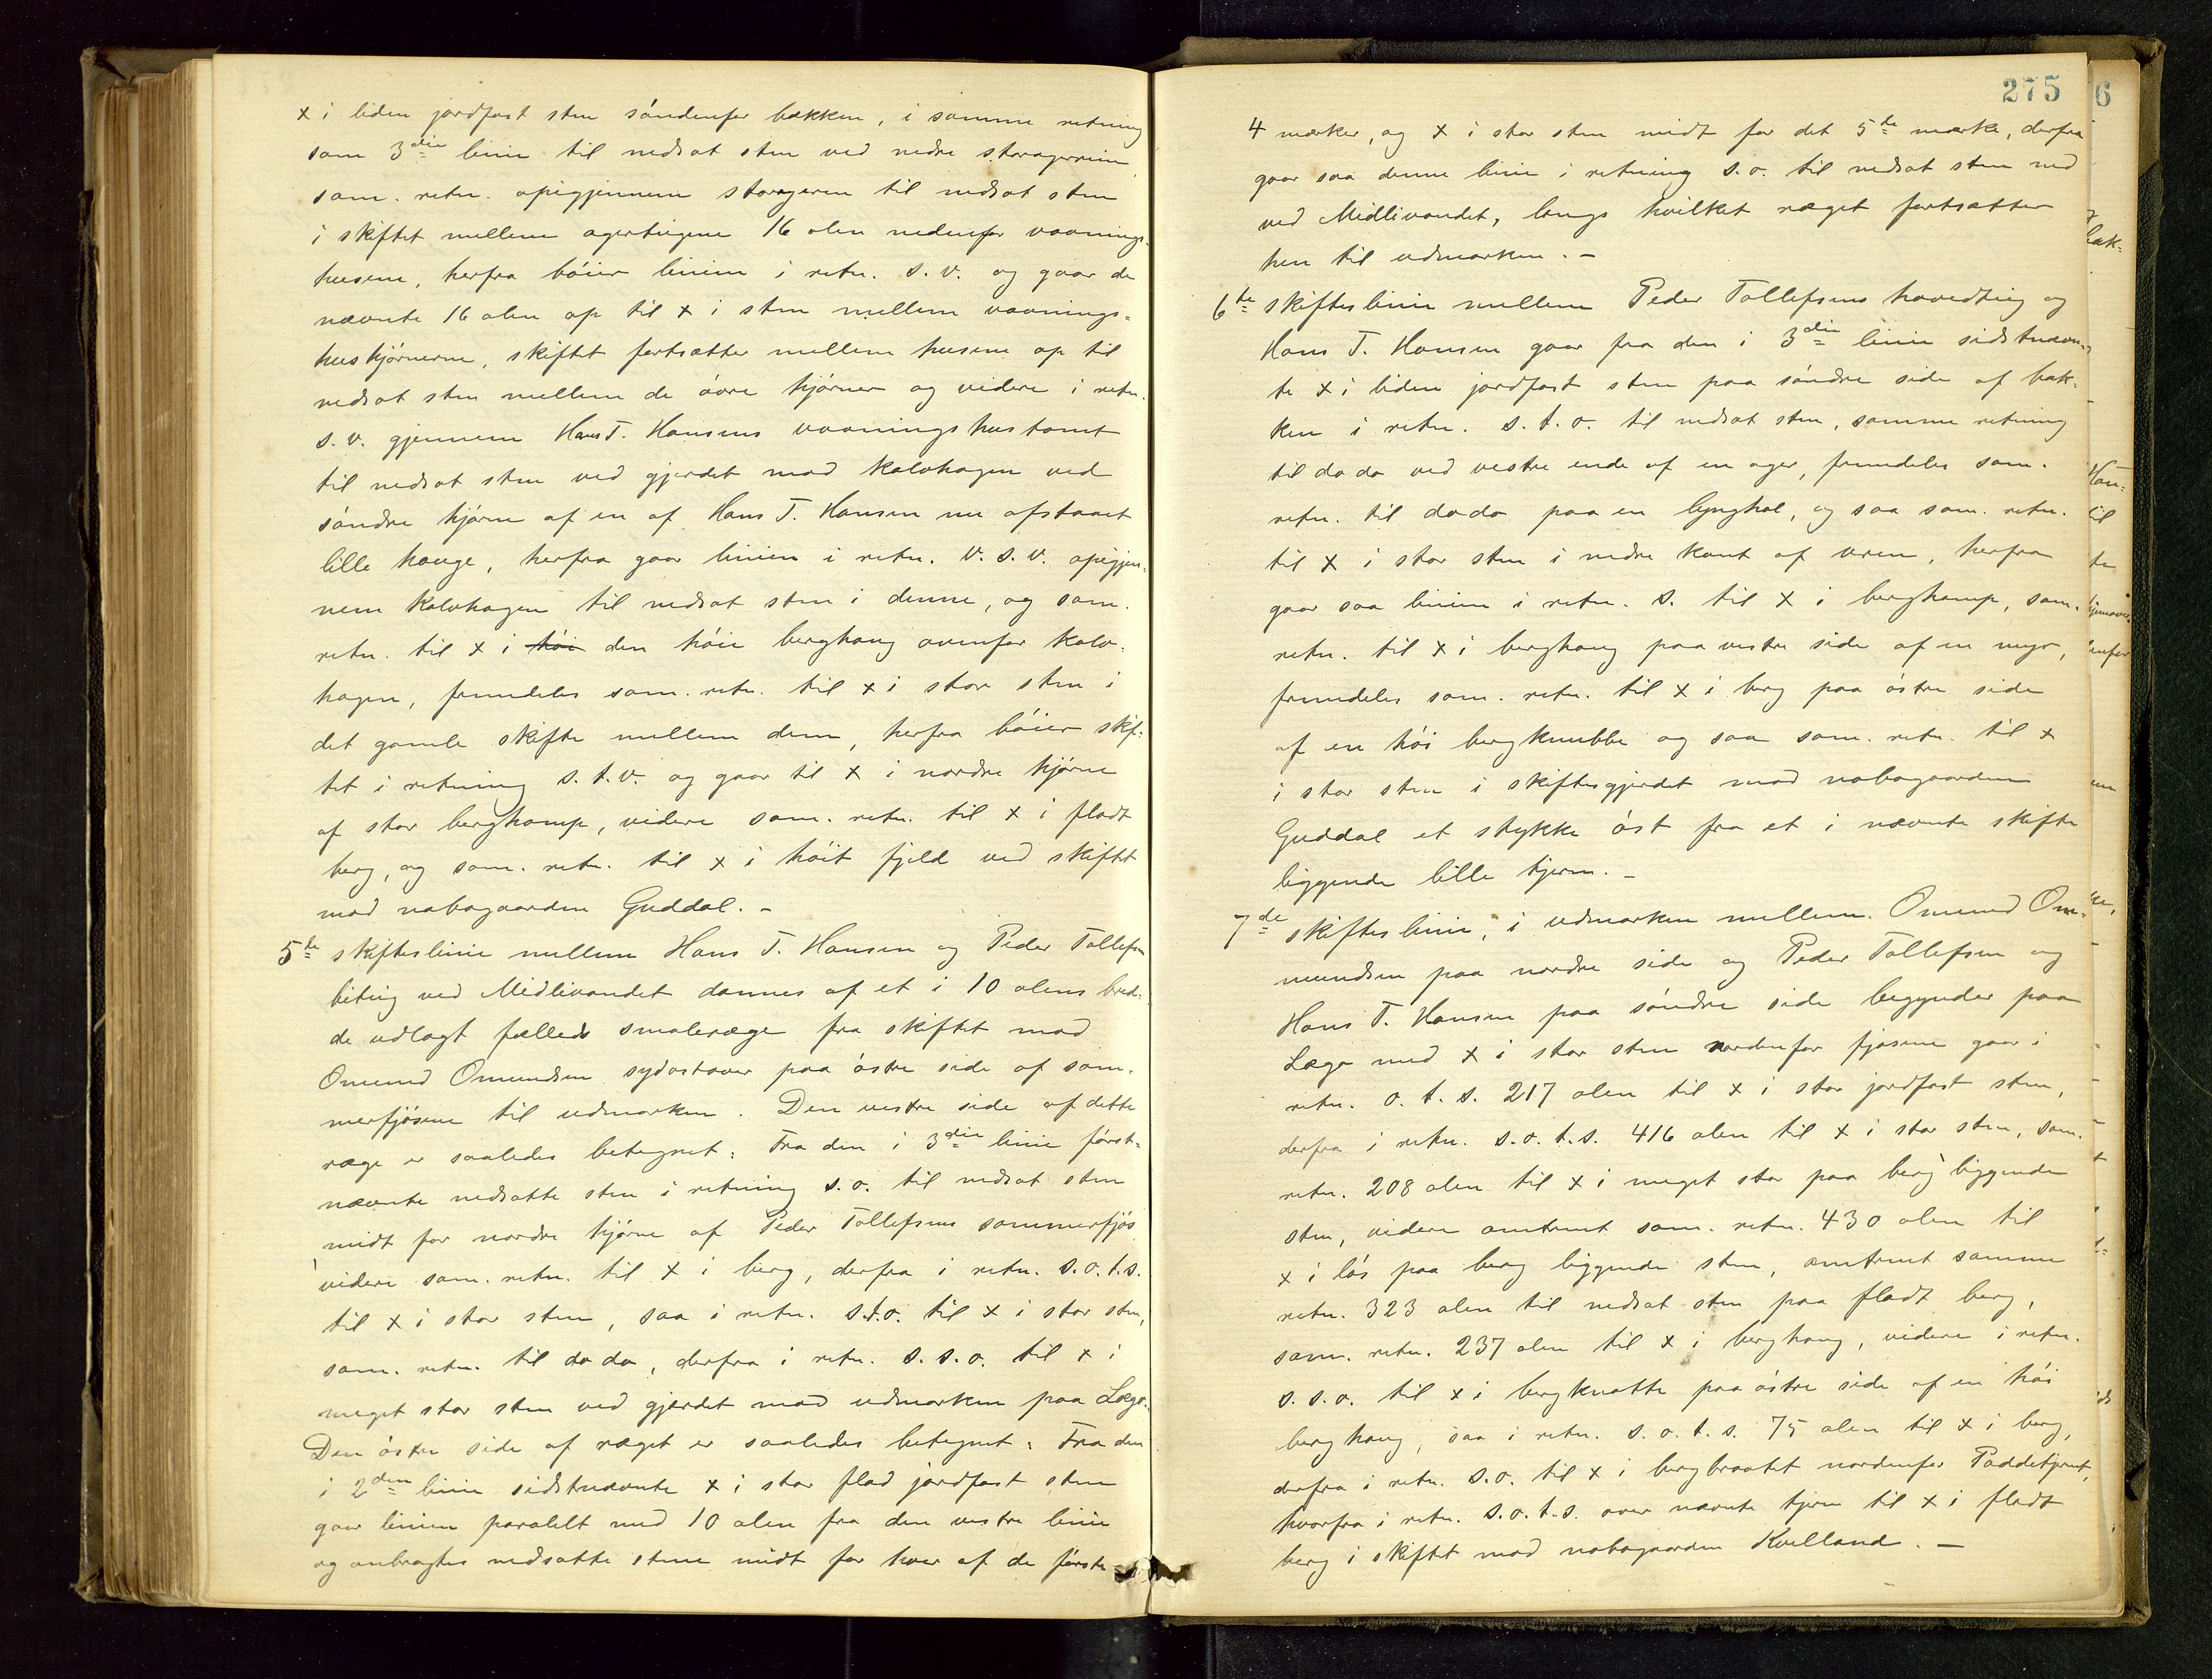 x i liden jordfast sten söndenfor bækken, i samme retning
som 3die linie til nedsat sten ved nedre storagerrein
sam. retn. opigjennem storageren til nedsat sten
i skiftet mellem agerteigene 16 alen nedenfor vaanings-
husene, herfra böier linien i retn. s.v. og gaar de
nævnte 16 alen op til x i sten mellem vaanings-
hushjörnerne, skiftet fortsætter mellem husene op til
nedsat sten mellem de övre hjörner og videre i retn.
s.v. gjennem Hans T. Hansens vaaningshustomt
til nedsat sten ved gjerdet mod kalvhagen ved
söndre hjörne af en af Hans T. Hansen nu afstaaet
lille hauge, herfra gaar linien i retn. v.s.v. opigjen-
nem kalvhagen til nedsat sten i denne, og sam.
retn. til x i höi den höie berghaug ovenfor kalv-
hagen, fremdeles sam. retn. til x i stor sten i
det gamle skifte mellem dem, herfra böier skif-
tet i retning s.t.v. og gaar til x i nordre hjörne
af stor berghamp, videre sam. retn. til x i fladt
berg, og sam. retn. til x i höit fjeld ved skiftet
mod nabogaarden Guddal. -
5te skifteslinie mellem Hans T. Hansen og Peder Tollefsens
biteig ved Midlivandet dannes af et i 10 alens bred-
de udlagt fælleds smaleræge fra skiftet mod
Omund Omundsen sydostover paa östre side af som-
merfjösene til udmarken. Den vestre side af dette
ræge er saaledes betegnet: Fra den i 3die linie först-
nævnte nedsatte sten i retning s.o. til nedsat sten
midt for nordre hjörne af Peder Tollefsens sommerfjös
videre sam. retn. til x i berg, derfra i retn. s.o.t.s.
til x i stor sten, saa i retn. s.t.o. til x i stor sten,
sam. retn. til do do, derfra i retn. s.s.o. til x i
meget stor sten ved gjerdet mod udmarken paa Lægo.
Den östre side af ræget er saaledes betegnet: Fra den
i 2den linie sidstnævnte x i stor flad jordfast sten
gaar linien paralelt med 10 alen fra den vestre linie
og anbragtes nedsatte stene midt for hver af de förste
275
4 mærker, og x i stor sten midt for det 5te mærke, derfra
gaar saa denne linie i retning s.o. til nedsat sten ned
ved Midlivandet, langs hvilket ræget fortsætter
hen til udmarken. -
6te skifteslinie mellem Peder Tollefsens hovedteig og
Hans T. Hansen gaar fra den i 3die linie sidstnævn-
te x i liden jordfast sten paa söndre side af bæk-
ken i retn. s.t.o. til nedsat sten, samme retning
til do do ved vestre ende af en ager, fremdeles sam.
retn. til do do paa en lynghol, og saa sam. retn.
til x i stor sten i nedre kant af uren, herfra
gaar saa linien i retn. s. til x i berghamp, sam.
retn. til x i berghaug paa vestre side af en myr,
fremdeles sam. retn. til x i berg paa östre side
af en höi bergknubbe og saa sam. retn. til x
i stor sten i skiftesgjerdet mod nabogaarden
Guddal et stykke öst fra et i nævnte skifte
liggende lille tjern. -
7de skifteslinie, i udmarken mellem Omund Om-
mundsen paa nordre side og Peder Tollefsen og
Hans T. Hansen paa söndre side begynder paa
Lægo med x i stor sten nordenfor fjösene gaar i
retn. o.t.s. 217 alen til x i stor jordfast sten,
derfra i retn. s.o.t.s. 416 alen til x i stor sten, sam.
retn. 208 alen til x i meget stor paa berg liggende
sten, videre omtrent sam. retn. 430 alen til
x i lös paa berg liggende sten, omtrent samme
retn. 323 alen til nedsat sten paa fladt berg,
sam. retn. 237 alen til x i berghaug, videre i retn.
s.s.o. til x i bergknatte paa östre side af en höi
berghaug, saa i retn. s.o.t.s. 75 alen til x i berg,
derfra i retn. s.o. til x i bergbraatet nordenfor Paddetjernet,
hvorfra i retn. s.o.t.s. over nævnte tjern til x i fladt
berg i skiftet mod nabogaarden Kvelland. -